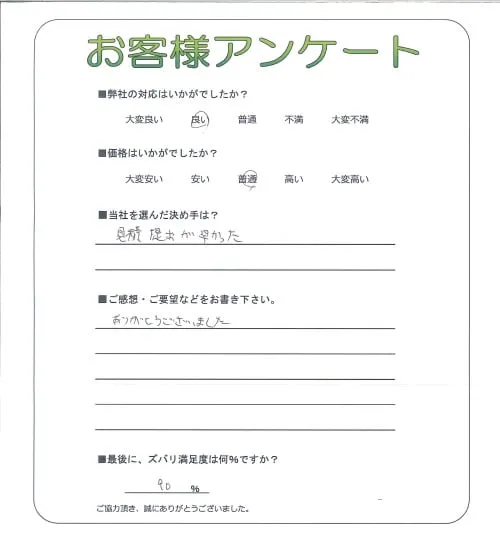 お客様アンケート
■弊社の対応はいかがでしたか？
大変良い 良い 普通 不満 大変不満
■価格はいかがでしたか？
大変安い 安い 普通 高い 大変高い
■当社を選んだ決め手は？
見積提出が早かった
■ご感想・ご要望などをお書き下さい。
ありがとうございました
■最後に、ズバリ満足度は何％ですか？
90 %
ご協力頂き、誠にありがとうございました。